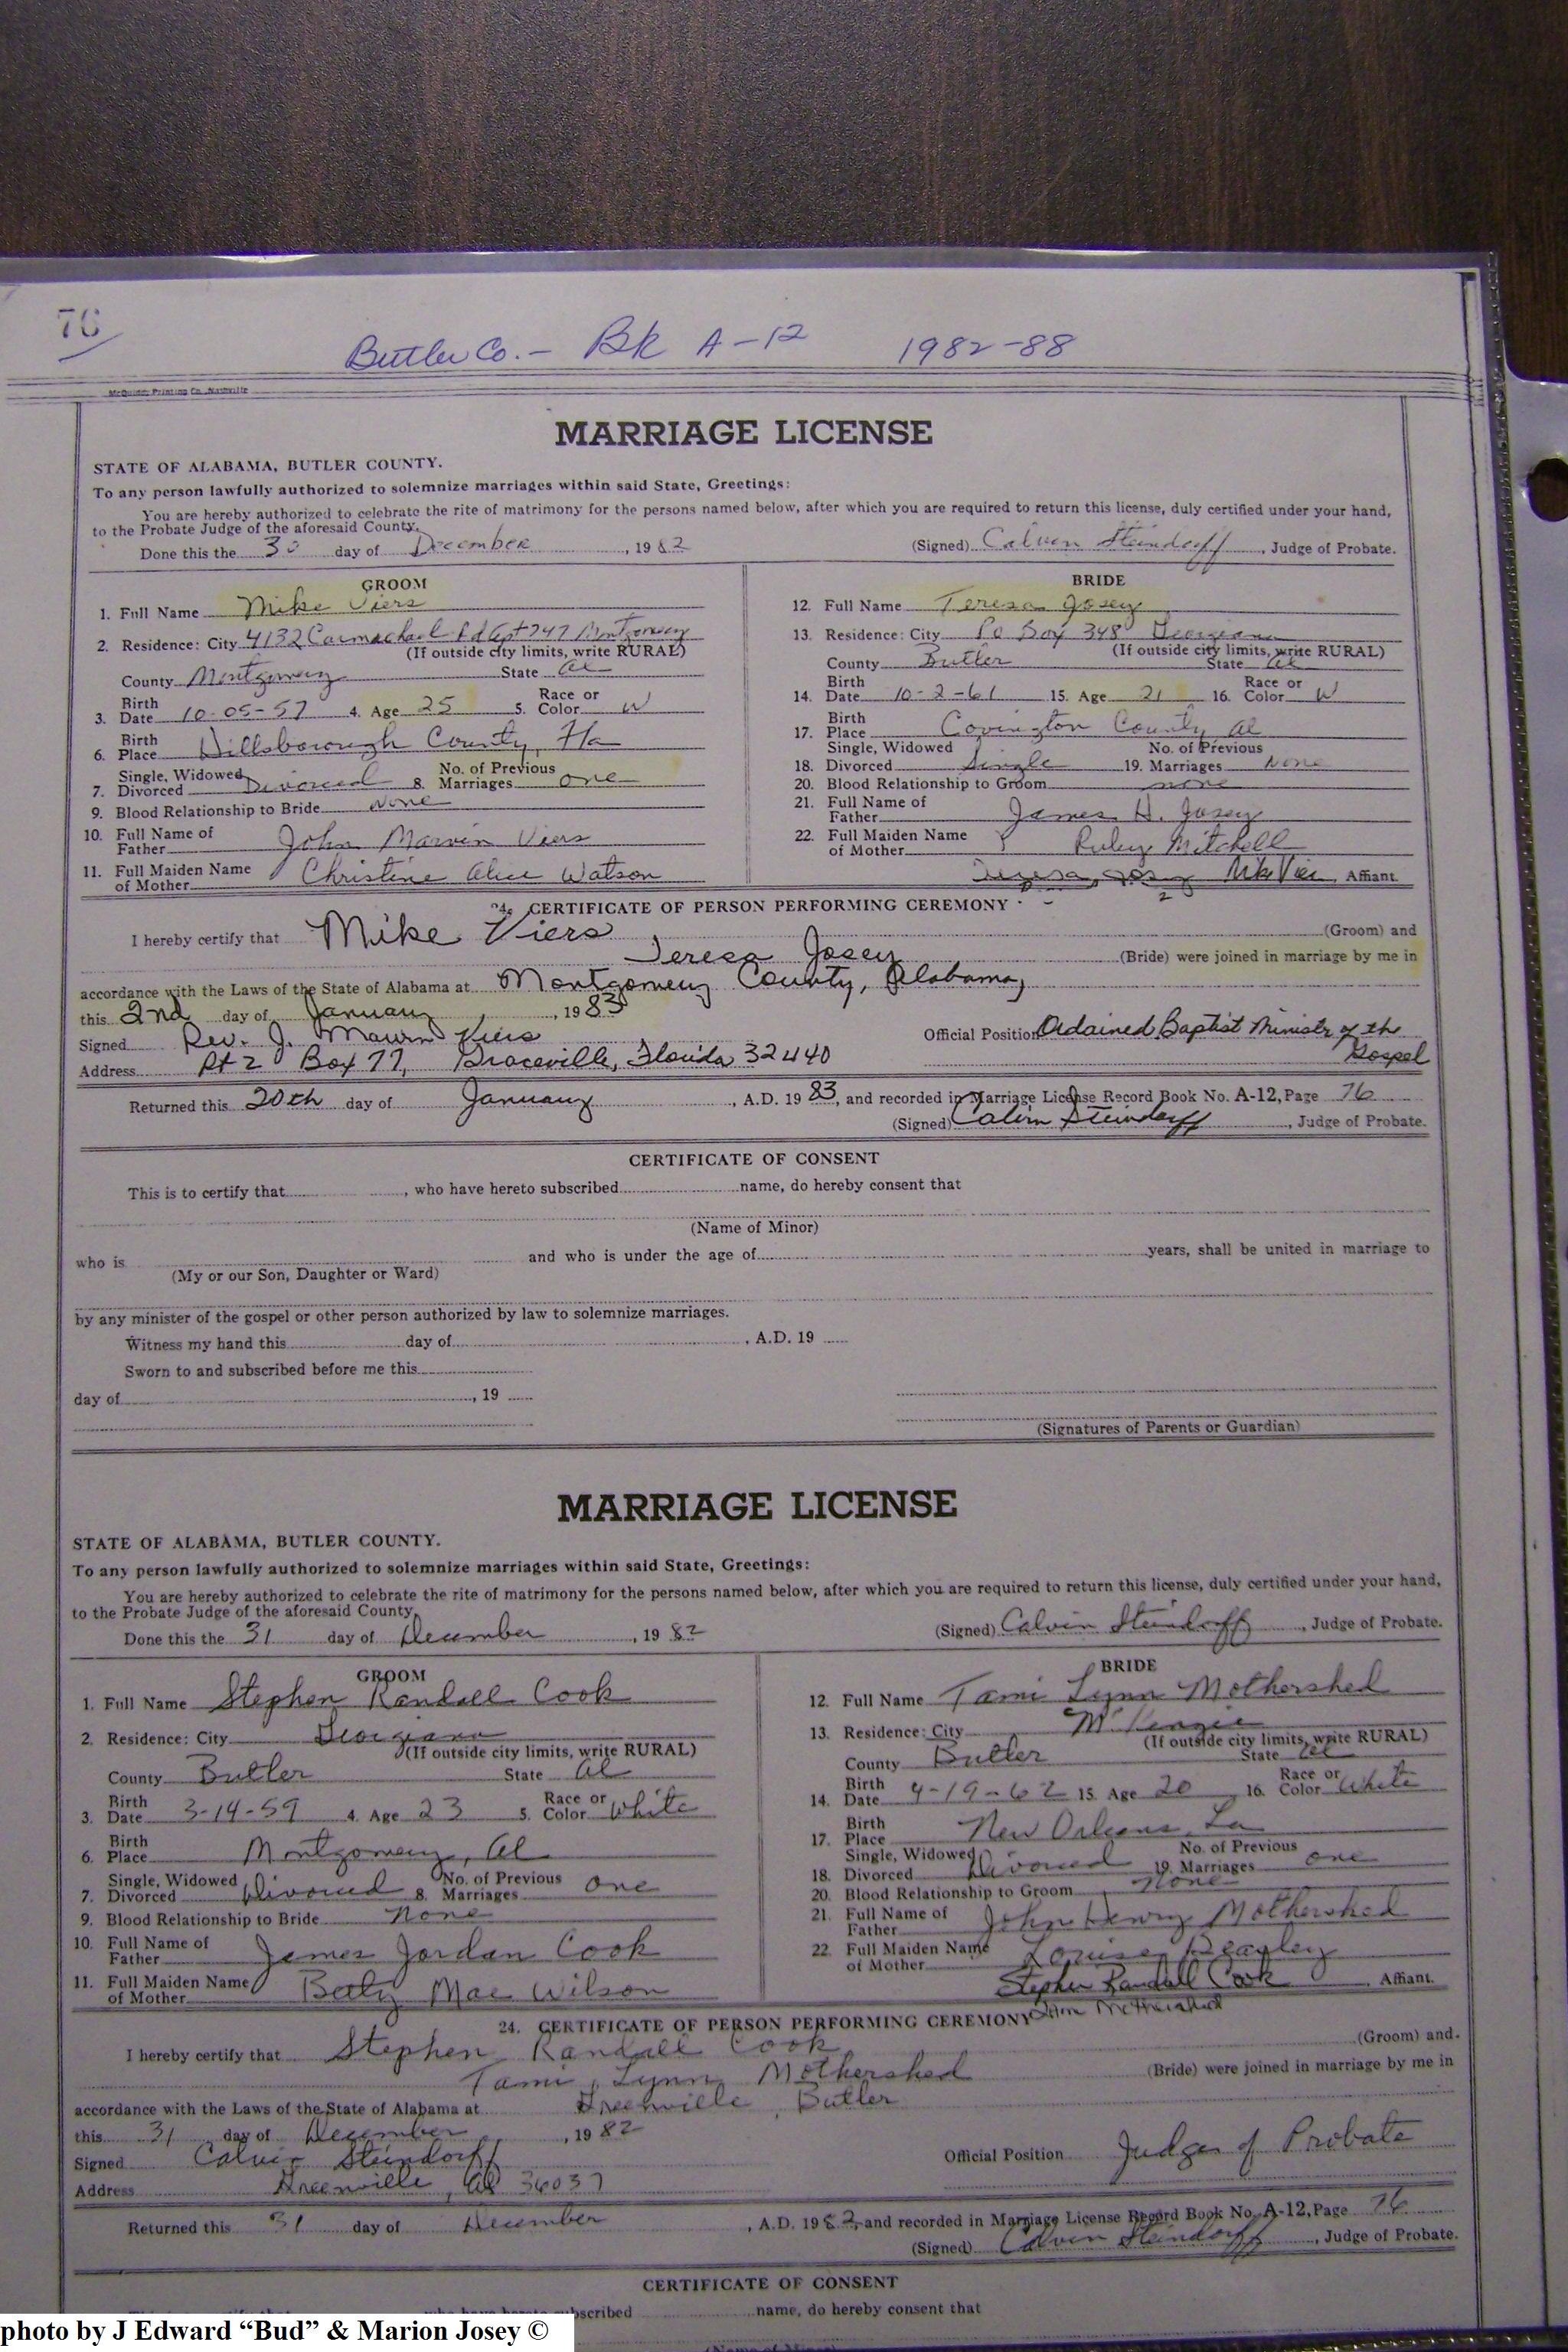 76
Butler Co. - Bk A-12 1982-88
McQuiddy Printing Co. Nashville
MARRIAGE LICENSE
STATE OF ALABAMA, BUTLER COUNTY.
To any person lawfully authorized to solemnize marriages within said State, Greetings:
You are hereby authorized to celebrate the rite of matrimony for the persons named below, after which you are required to return this license, duly certified under your hand,
to the Probate Judge of the aforesaid County.
Done this the 30 day of December, 1982 (Signed) Calvin Steindorff, Judge of Probate.
GROOM
1. Full Name Mike Viers
2. Residence: City 4132 Carmachael Rd Apt 747 Montgomery
(If outside city limits, write RURAL)
County Montgomery State Al
3. Birth Date 10-05-57 4. Age 25 5. Race or Color W
6. Birth Place Hillsborough County, Fla
7. Single, Widowed Divorced Divorced 8. No. of Previous Marriages one
9. Blood Relationship to Bride None
10. Full Name of Father John Marvin Viers
11. Full Maiden Name of Mother Christine Alice Watson
BRIDE
12. Full Name Teresa Josey
13. Residence: City Po Box 348 Georgiana
(If outside city limits, write RURAL)
County Butler State Al
14. Birth Date 10-2-61 15. Age 21 16. Race or Color W
17. Birth Place Covington County, Al
18. Single, Widowed Divorced Single 19. No. of Previous Marriages None
20. Blood Relationship to Groom none
21. Full Name of Father James H. Josey
22. Full Maiden Name of Mother Ruby Mitchell
Teresa Josey Mike Viers, Affiant.
24. CERTIFICATE OF PERSON PERFORMING CEREMONY
I hereby certify that Mike Viers (Groom) and
Teresa Josey (Bride) were joined in marriage by me in
accordance with the Laws of the State of Alabama at Montgomery County, Alabama,
this 2nd day of January, 1983
Signed Rev. J. Viers Official Position Ordained Baptist Ministr of the Gospel
Address Rt 2 Box 77, Graceville, Florida 32440
Returned this 20th day of January, A.D. 1983, and recorded in Marriage License Record Book No. A-12, Page 76
(Signed) Calvin Steindorff, Judge of Probate.
CERTIFICATE OF CONSENT
This is to certify that , who have hereto subscribed name, do hereby consent that
(Name of Minor)
who is and who is under the age of years, shall be united in marriage to
(My or our Son, Daughter or Ward)
by any minister of the gospel or other person authorized by law to solemnize marriages.
Witness my hand this day of , A.D. 19
Sworn to and subscribed before me this
day of , 19
(Signatures of Parents or Guardian)
MARRIAGE LICENSE
STATE OF ALABAMA, BUTLER COUNTY.
To any person lawfully authorized to solemnize marriages within said State, Greetings:
You are hereby authorized to celebrate the rite of matrimony for the persons named below, after which you are required to return this license, duly certified under your hand,
to the Probate Judge of the aforesaid County.
Done this the 31 day of December, 1982 (Signed) Calvin Steindorff, Judge of Probate.
GROOM
1. Full Name Stephen Randall Cook
2. Residence: City Georgiana
(If outside city limits, write RURAL)
County Butler State Al
3. Birth Date 3-14-59 4. Age 23 5. Race or Color White
6. Birth Place Montgomery, Al
7. Single, Widowed Divorced Divorced 8. No. of Previous Marriages one
9. Blood Relationship to Bride None
10. Full Name of Father James Jordan Cook
11. Full Maiden Name of Mother Betty Mae Wilson
BRIDE
12. Full Name Tami Lynn Mothershed
13. Residence: City McKenzie
(If outside city limits, write RURAL)
County Butler State Al
14. Birth Date 4-19-62 15. Age 20 16. Race or Color White
17. Birth Place New Orleans, La
18. Single, Widowed Divorced Divorced 19. No. of Previous Marriages one
20. Blood Relationship to Groom None
21. Full Name of Father John Henry Mothershed
22. Full Maiden Name of Mother Louise Beasley
Stephen Randall Cook, Affiant.
Tami Mothershed
24. CERTIFICATE OF PERSON PERFORMING CEREMONY
I hereby certify that Stephen Randall Cook (Groom) and
Tami Lynn Mothershed (Bride) were joined in marriage by me in
accordance with the Laws of the State of Alabama at Greenville, Butler
this 31 day of December, 1982
Signed Calvin Steindorff Official Position Judge of Probate
Address Greenville, Al 36037
Returned this 31 day of December, A.D. 1982, and recorded in Marriage License Record Book No. A-12, Page 76
(Signed) Calvin Steindorff, Judge of Probate.
CERTIFICATE OF CONSENT
name, do hereby consent that
photo by J Edward “Bud” & Marion Josey ©